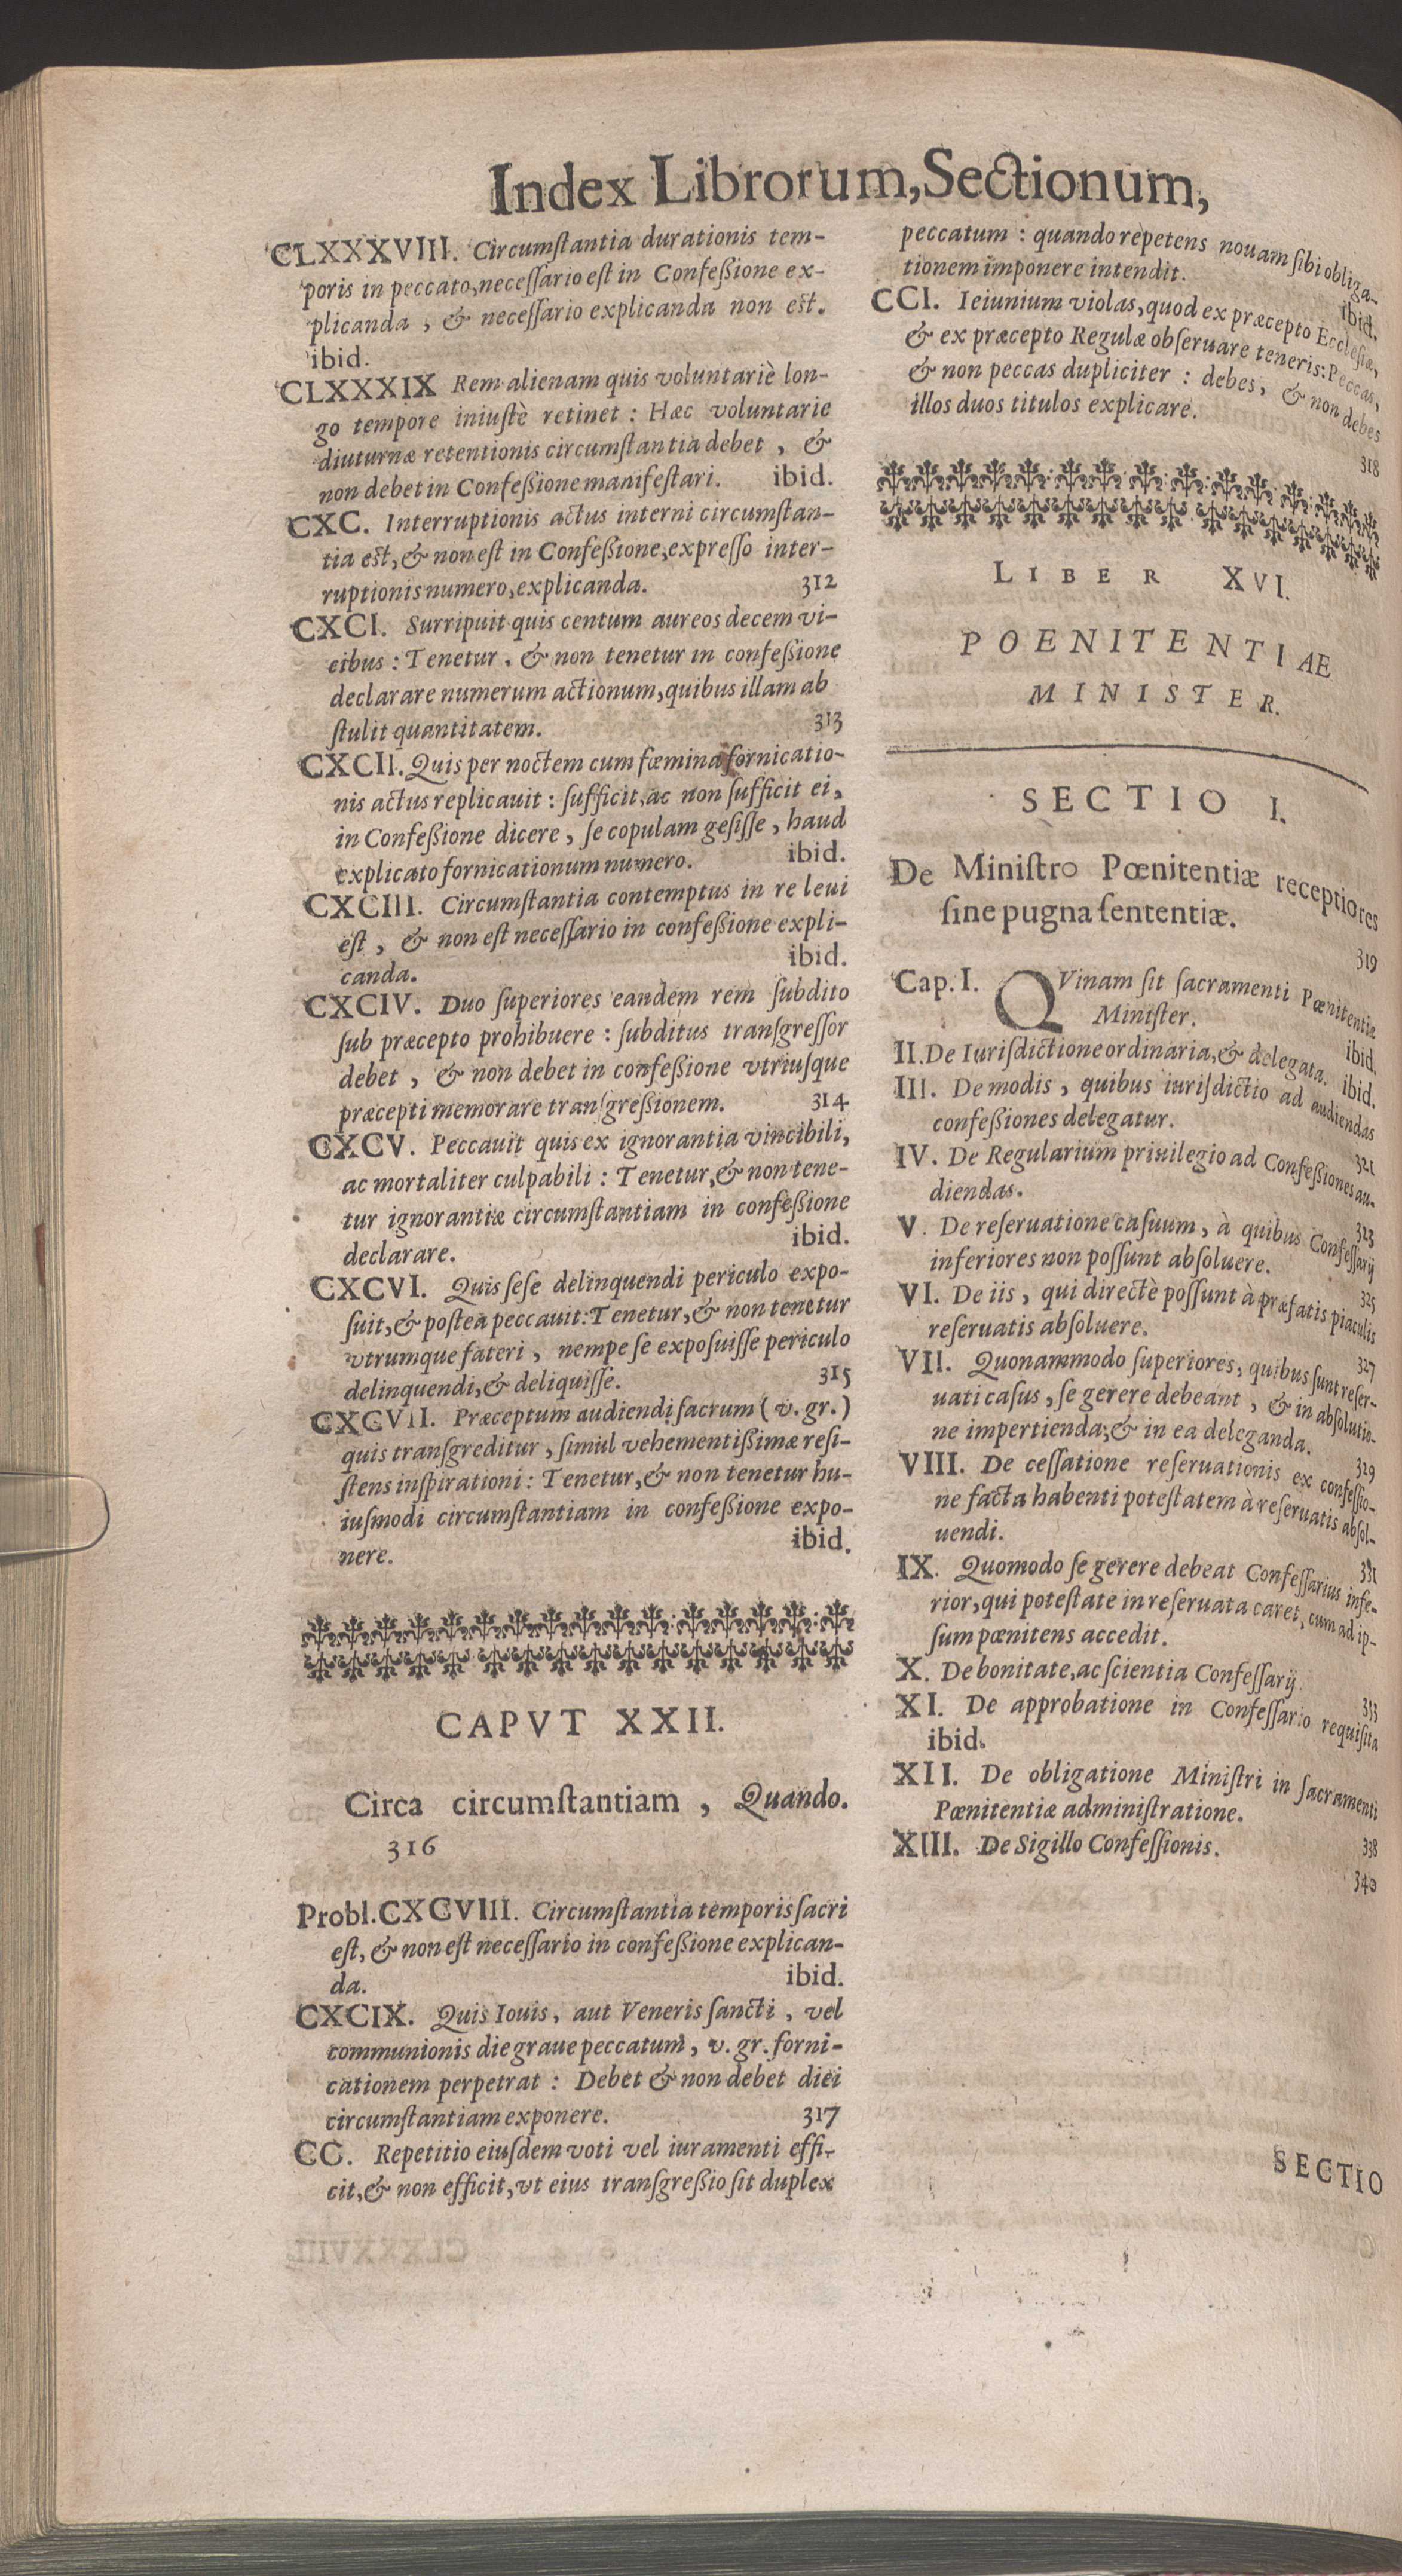 Index Librorum, Sectionum,
CLXXXVIII. Circumſtantia durationis tem-
poris in peccato, neceſſario eſt in Confeßione ex-
plicanda, & neceſſario explicanda non eſt.
ibid.
CLXXXIX Rem alienam quis voluntariè lon-
go tempore iniuſtè retinet : Hæc voluntarie
diuturnæ retentionis circumſtantia debet, &
non debet in Confeßione manifeſtari. ibid.
CXC. Interruptionis actus interni circumſtan-
tia eſt, & non eſt in Confeßione, expreſſo inter-
ruptionis numero, explicanda. 312
CXCI. Surripuit quis centum aureos decem vi-
cibus : Tenetur, & non tenetur in confeßione
declarare numerum actionum, quibus illam ab
ſtulit quantitatem. 313
CXCII. Quis per noctem cum fœmina fornicatio-
nis actus replicauit : ſufficit, ac non ſufficit ei,
in Confeßione dicere, ſe copulam geſiſſe, haud
explicato fornicationum numero. ibid.
CXCIII. Circumſtantia contemptus in re leui
eſt, & non eſt neceſſario in confeßione expli-
canda. ibid.
CXCIV. Duo ſuperiores eandem rem ſubdito
ſub præcepto prohibuere : ſubditus tranſgreſſor
debet, & non debet in confeßione vtriuſque
præcepti memorare tranſgreßionem. 314
CXCV. Peccauit quis ex ignorantia vincibili,
ac mortaliter culpabili : Tenetur, & non tene-
tur ignorantiæ circumſtantiam in confeßione
declarare. ibid.
CXCVI. Quis ſeſe delinquendi periculo expo-
ſuit, & poſtea peccauit: Tenetur, & non tenetur
vtrumque fateri, nempe ſe expoſuiſſe periculo
delinquendi, & deliquiſſe. 315
CXCVII. Præceptum audiendi ſacrum (v. gr.)
quis tranſgreditur, ſimul vehementißimæ reſi-
ſtens inſpirationi : Tenetur, & non tenetur hu-
iuſmodi circumſtantiam in confeßione expo-
nere. ibid.
CAPVT XXII.
Circa circumſtantiam, Quando.
316
Probl. CXCVIII. Circumſtantia temporis ſacri
eſt, & non eſt neceſſario in confeßione explican-
da. ibid.
CXCIX. Quis Iouis, aut Veneris ſancti, vel
communionis die graue peccatum, v. gr. forni-
cationem perpetrat : Debet & non debet diei
circumſtantiam exponere. 317
CC. Repetitio eiuſdem voti vel iuramenti effi-
cit, & non efficit, vt eius tranſgreßio ſit duplex
peccatum : quando repetens nouam ſibi obliga-
tionem imponere intendit. ibid.
CCI. Ieiunium violas, quod ex præcepto Eccleſiæ,
& ex præcepto Regulæ obſeruare teneris: Peccas,
& non peccas dupliciter : debes, & non debes
illos duos titulos explicare. 318
LIBER XVI.
POENITENTIÆ
MINISTER.
SECTIO I.
De Miniſtro Pœnitentiæ receptiores
ſine pugna ſententiæ. 319
Cap. I. QVinam ſit ſacramenti Pœnitentiæ
Miniſter. ibid.
II. De Iuriſdictione ordinaria, & delegata. ibid.
III. De modis, quibus iuriſdictio ad audiendas
confeßiones delegatur. 321
IV. De Regularium priuilegio ad Confeßiones au-
diendas. 323
V. De reſeruatione caſuum, à quibus Confeſſarij
inferiores non poſſunt abſoluere. 325
VI. De iis, qui directè poſſunt à præfatis piaculis
reſeruatis abſoluere. 327
VII. Quonammodo ſuperiores, quibus ſunt reſer-
uati caſus, ſe gerere debeant, & in abſolutio-
ne impertienda, & in ea deleganda. 329
VIII. De ceſſatione reſeruationis ex confeſſio-
ne facta habenti poteſtatem à reſeruatis abſol-
uendi. 331
IX. Quomodo ſe gerere debeat Confeſſarius infe-
rior, qui poteſtate in reſeruata caret, cum ad ip-
ſum pœnitens accedit.
X. De bonitate, ac ſcientia Confeſſarij. 333
XI. De approbatione in Confeſſario requiſita
ibid.
XII. De obligatione Miniſtri in ſacramenti
Pœnitentiæ adminiſtratione. 338
XIII. De Sigillo Confeſſionis. 340
SECTIO